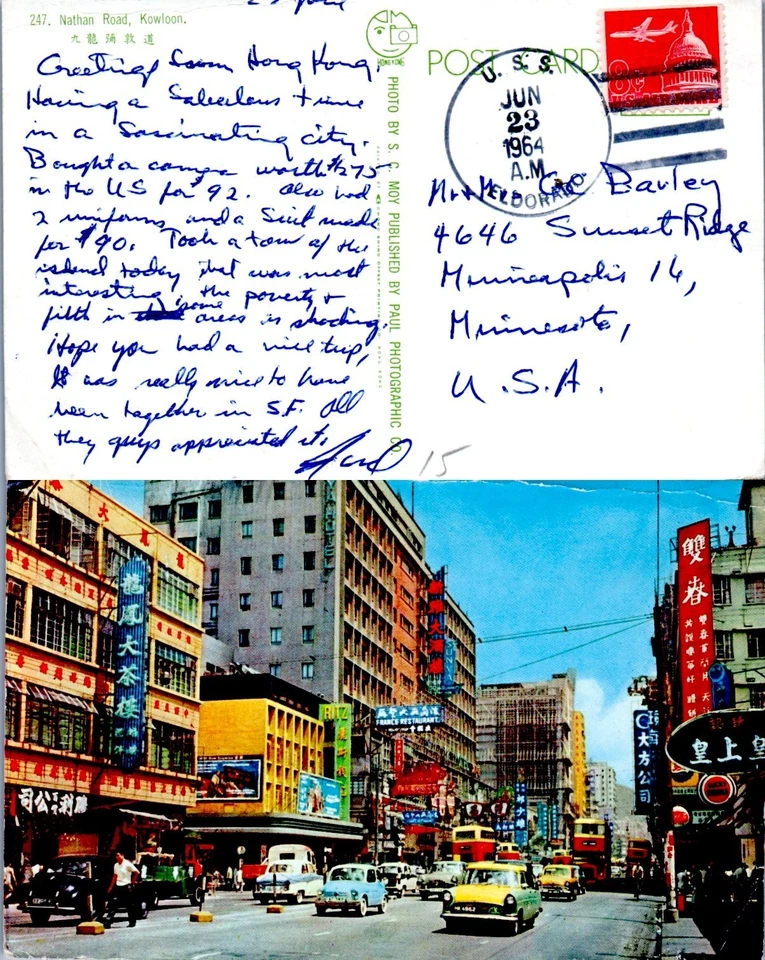 23 June
247. Nathan Road, Kowloon.
九龍彌敦道
Greetings from Hong Kong.
Having a fabulous time
in a fascinating city.
Bought a camera worth $275
in the US for $92. Also had
2 uniforms and a suit made
for $90. Took a tour of the
island today that was most
interesting, the poverty +
filth in some areas is shocking.
Hope you had a nice trip,
It was really nice to have
been together in S.F. All
they guys appreciated it.
HONG KONG
PHOTO BY S. C. MOY PUBLISHED BY PAUL PHOTOGRAPHIC CO.
POST CARD
U. S. S.
JUN
23
1964
A.M.
ELDORADO
8¢
U.S. AIR MAIL
Mr + Mrs Geo Barley
4646 Sunset Ridge
Minneapolis 16,
Minnesota,
U.S.A.
15
龍鳳大茶樓
RITZ
FRANCIS RESTAURANT
大方公司
雙春
皇上皇
勝利公司